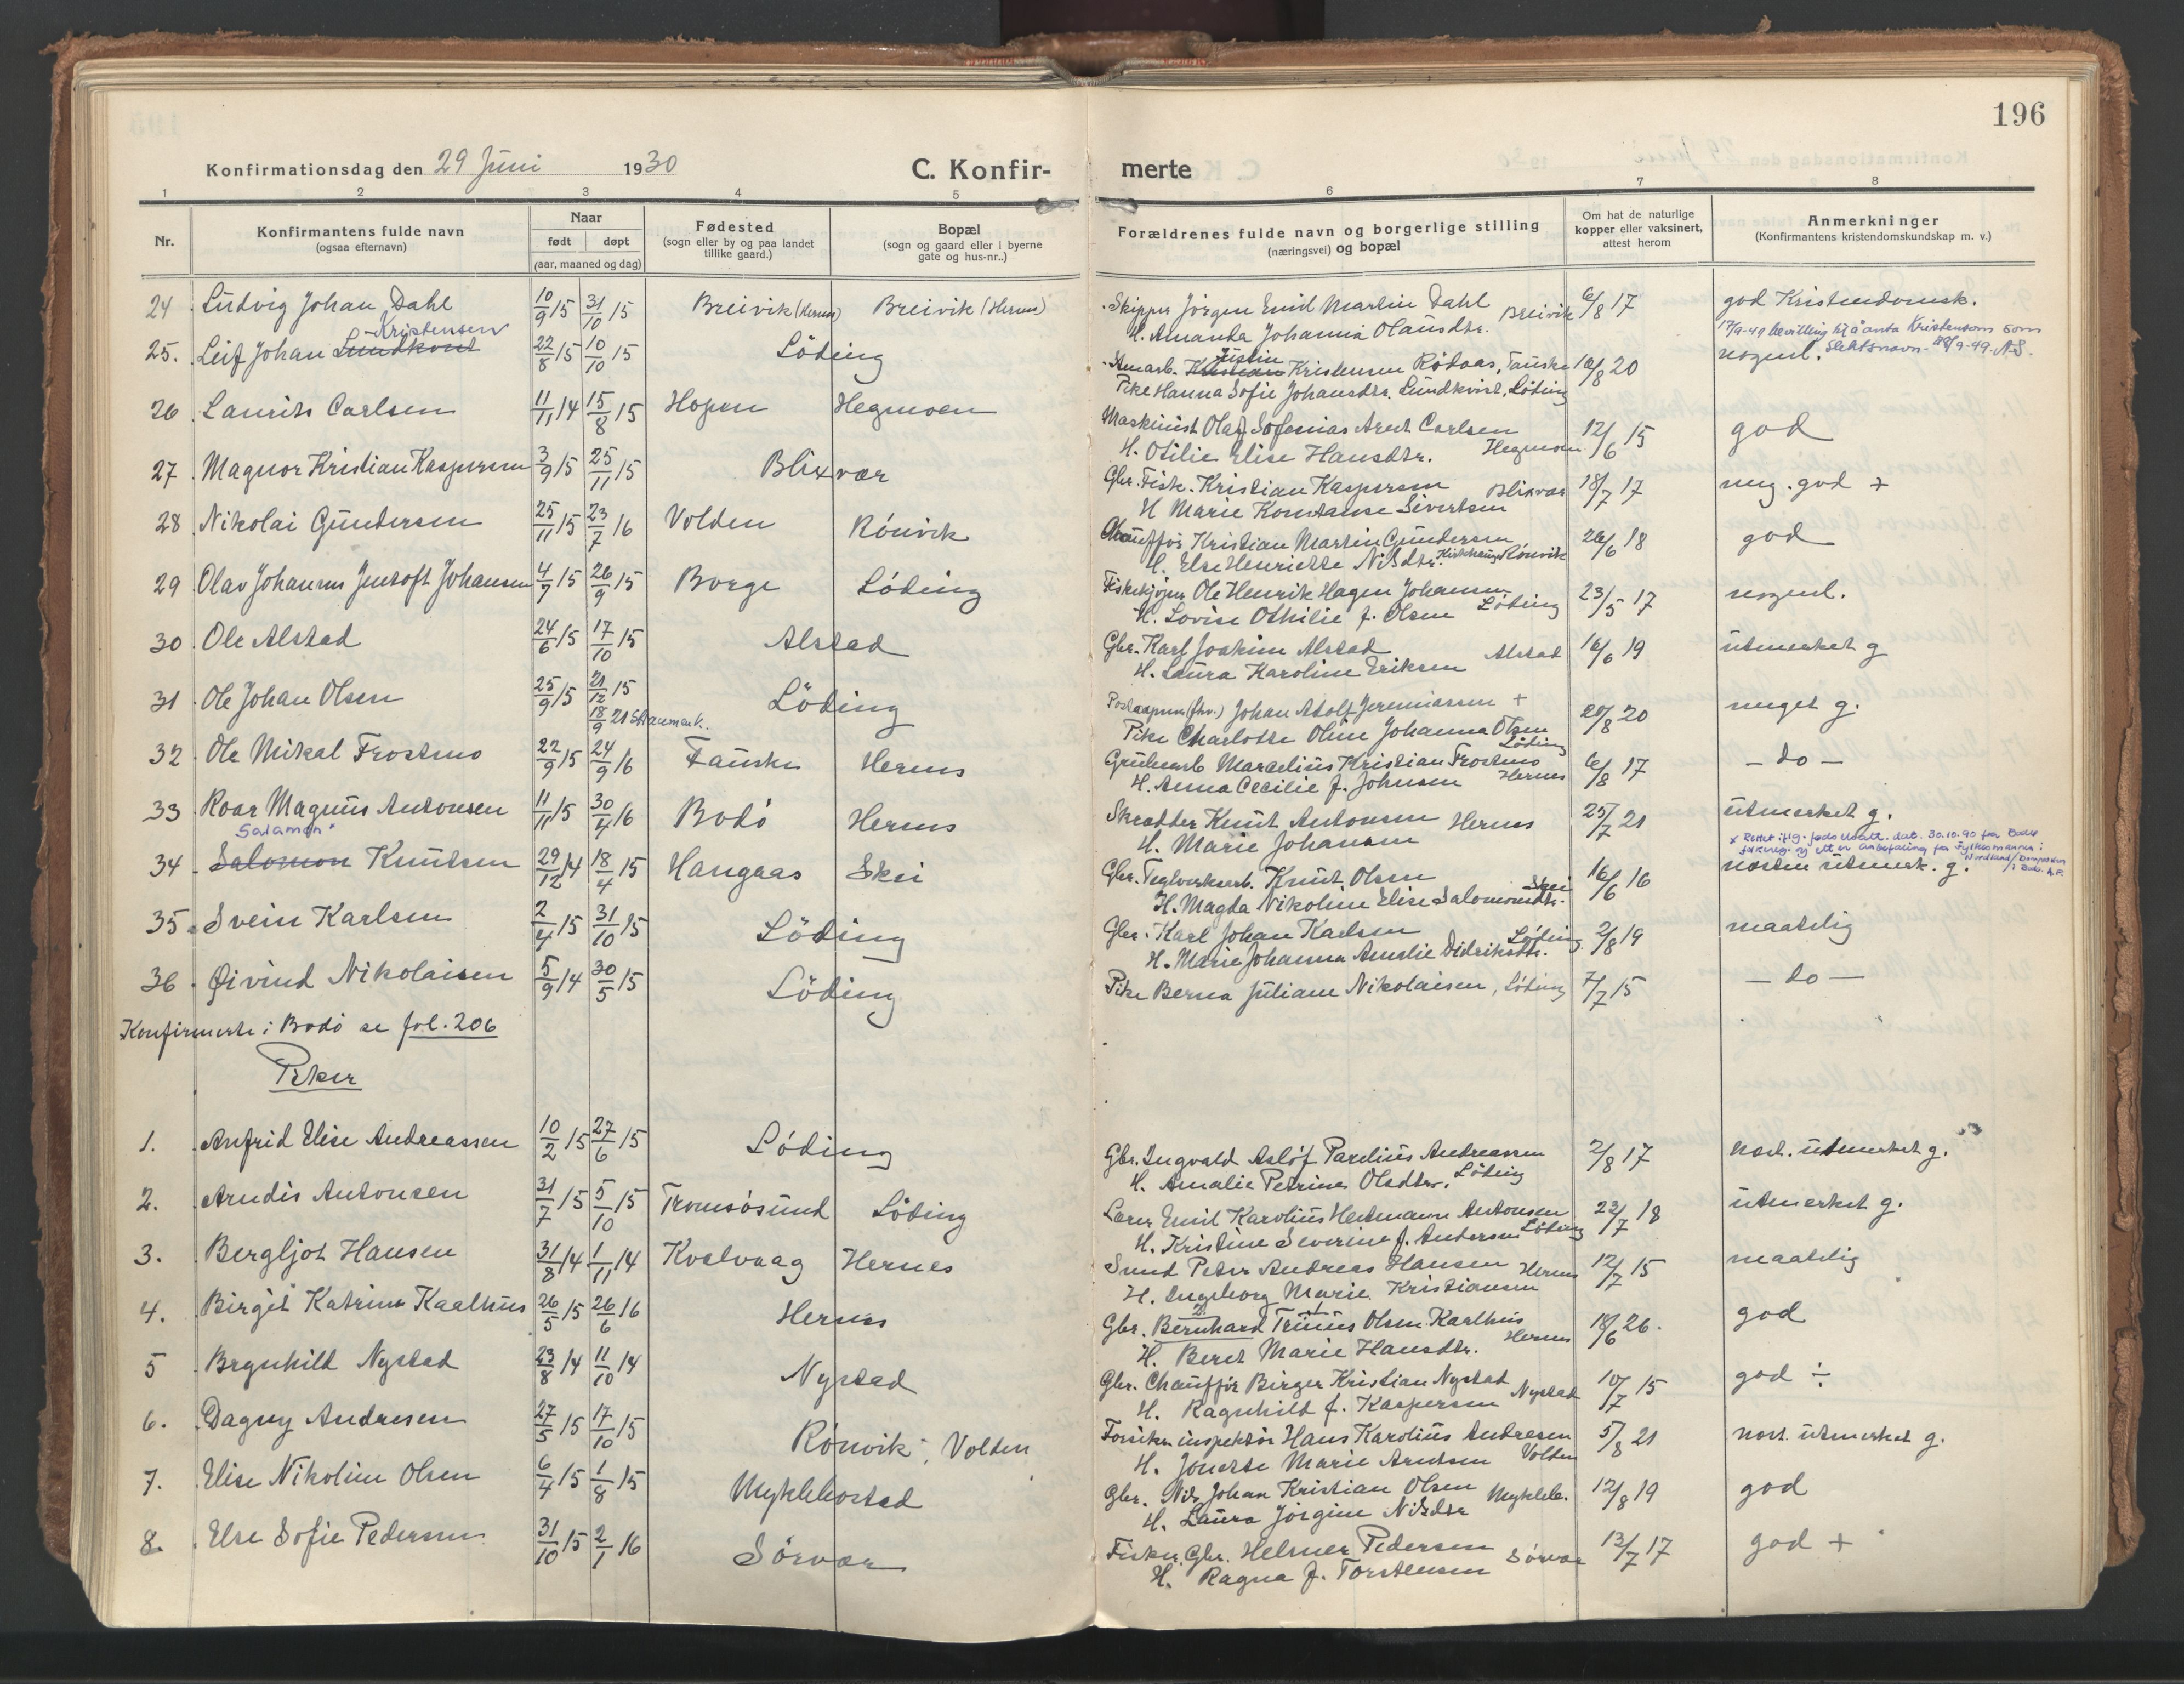 196
Konfirmationsdag den 29 Juni 1930
C. Konfir-
merte
1 2 3 4 5 6 7 8
Nr.
Konfirmantens fulde navn
(ogsaa efternavn)
Naar
født døpt
(aar, maaned og dag)
Fødested
(sogn eller by og paa landet
tillike gaard.)
Bopæl
(sogn og gaard eller i byerne
gate og hus-nr..)
Forældrenes fulde navn og borgerlige stilling
(næringsvei) og bopæl
Om hat de naturlige
kopper eller vaksinert,
attest herom
Anmerkninger
(Konfirmantens kristendomskundskap m. v.)
24 Ludvig Johan Dahl 10/9 15 31/10 15 Breivik (Hernes) Breivik (Hernes) Skipper Jørgen Emil Martin Dahl Breivik 6/8 17 god Kristendomsk.
H. Amanda Johanna Olausdtr.
25. Leif Johan Lundkvist Kristensen 22/8 15 10/10 15 Löding Anarb. Kristian Justin Kristensen Rödaas, Fauske 16/8 20 nogenl.
17/9-49 bevilling til å anta Kristensen som
slektsnavn. A.S.
Pike Hanna Sofie Johansdtr. Lundkvist, Löding
26 Laurits Carlsen 11/11 14 15/8 15 Hopen Hegmoen Maskinist Olaf Sofenias Arnt Carlsen 12/6 15 god
H. Otilie Elise Hansdtr. Hegmoen
27 Magnor Kristian Kaspersen 3/9 15 25/11 15 Blixvær Gbr. Fisk. Kristian Kaspersen Blixvær 18/7 17 meg. god +
H Marie Konstanse Sivertsen
28 Nikolai Gundersen 25/11 15 23/7 16 Volden Rönvik Chauffør Kristian Martin Gundersen 26/6 18 god
H. Else Henriette Nilsdtr. Kirkhaug Rönvik
29 Olav Johannes Jentoft Johansen 4/7 15 26/9 15 Borge Löding Fiskekjöper Ole Henrik Hagen Johansen 23/5 17 nogenl.
H. Lovise Othilie f. Olsen Löding
30 Ole Alstad 24/6 15 17/10 15 Alstad Gbr. Karl Joakim Alstad Alstad 16/6 19 utmerket g
H. Laura Karoline Eriksen
31 Ole Johan Olsen 25/9 15 21/12 15 Löding Postaapner (fhv.) Johan Adolf Jeremiassen + 20/8 20 meget g.
18/9 21 Straumen k.
Pike Charlotte Oline Johanna Olsen
Löding
32 Ole Mikal Frostmo 22/9 15 24/9 16 Fauske Hernes Grubearb Marselius Kristian Frostmo 6/8 17 - do -
H. Anna Cecilie f. Johnsen Hernes
33 Roar Magnus Antonsen 11/11 15 30/4 16 Bodö Hernes Skrædder Knut Antonsen Hernes 25/7 21 utmerket g.
H. Marie Johansen
34 Salomon Salamon x Knutsen 29/12 14 18/4 15 Hangaas Skei Gbr. Teglverksarb. Knut Olsen 16/6 16 næsten utmerk. g.
x Rettet iflg. fødselsatt. dat. 30.10.90 fra Bodø
folkereg. og etter anbefaling fra Fylkesmannen i
Nordland
H. Magda Nikoline Elise Salomonsdtr. Skei
35. Svein Karlsen 2/4 15 31/10 15 Löding Gbr. Karl Johan Karlsen Löding 2/8 19 maatelig
H. Marie Johanna Amalie Didriksdtr.
36. Øivind Nikolaisen 5/9 14 30/5 15 Löding Pike Berna Juliane Nikolaisen, Löding 7/7 15 - do -
Konfirmerte i Bodö se fol. 206
Piker
1. Anfrid Elise Andreassen 10/2 15 27/6 15 Löding Gbr. Ingvald Asløf Parelius Andreassen 2/8 17 næst. utmerket g.
H. Amalie Petrine Olsdtr. Löding
2. Arndis Antonsen 31/7 15 5/10 15 Tromsösund Löding Lærer Emil Karolius Heitmann Antonsen 23/7 18 utmerket g.
H. Kristine Severine f. Andersen Löding
3. Bergljot Hansen 31/8 14 1/11 14 Kvalvaag Hernes Smed Peter Andreas Hansen Hernes 12/7 15 maatelig
H. Ingeborg Marie Kristiansen
4. Birgit Katrine Kaalhus 26/5 15 26/6 16 Hernes Gbr. Bernhard Trinus Olsen Kaalhus 18/6 26. god
H. Beret Marie Hansdtr. Hernes
5 Brynhild Nystad 23/8 14 11/10 14 Nystad Gbr. Chauffør Birger Kristian Nystad 10/7 15 god ÷
H. Ragnhild f. Kaspersen Nystad
6. Dagny Andresen 27/5 15 17/10 15 Rönvik, Volden Forsikr. inspektör Hans Karolius Andresen 5/8 21 næst. utmerket g.
H. Jonette Marie Arntsen Volden
7. Elise Nikoline Olsen 6/4 15 1/8 15 Myklebostad Gbr. Nils Johan Kristian Olsen Mykleb. 12/8 19 god
H. Laura Jörgine Nilsdtr
8. Else Sofie Pedersen 31/10 15 2/1 16 Sörvær Fisker, Gbr. Helmer Pedersen Sörvær 13/7 17 god +
H. Ragna f. Torstensen